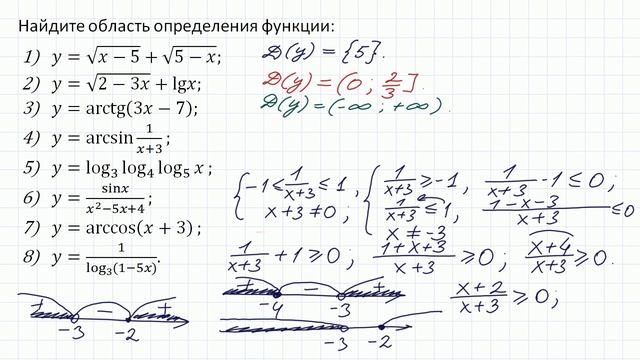 Найдите область определения функции:
1) y = √(x − 5) + √(5 − x); D(y) = {5}.
2) y = √(2 − 3x) + lgx; D(y) = (0; 2/3].
3) y = arctg(3x − 7); D(y) = (−∞; +∞).
4) y = arcsin 1/(x+3);
5) y = log₃ log₄ log₅ x;
6) y = sinx/(x²−5x+4);
7) y = arccos(x + 3);
8) y = 1/log₃(1−5x).
{ −1 ≤ 1/(x+3) ≤ 1,
x+3 ≠ 0;
{ 1/(x+3) ≥ −1,
1/(x+3) ≤ 1,
x ≠ −3
1/(x+3) − 1 ≤ 0;
(1−x−3)/(x+3) ≤ 0
1/(x+3) + 1 ≥ 0; (1+x+3)/(x+3) ≥ 0; (x+4)/(x+3) ≥ 0.
+ − +
−3 −2
+ − +
−4 −3
−3 −2
(x+2)/(x+3) ≥ 0;